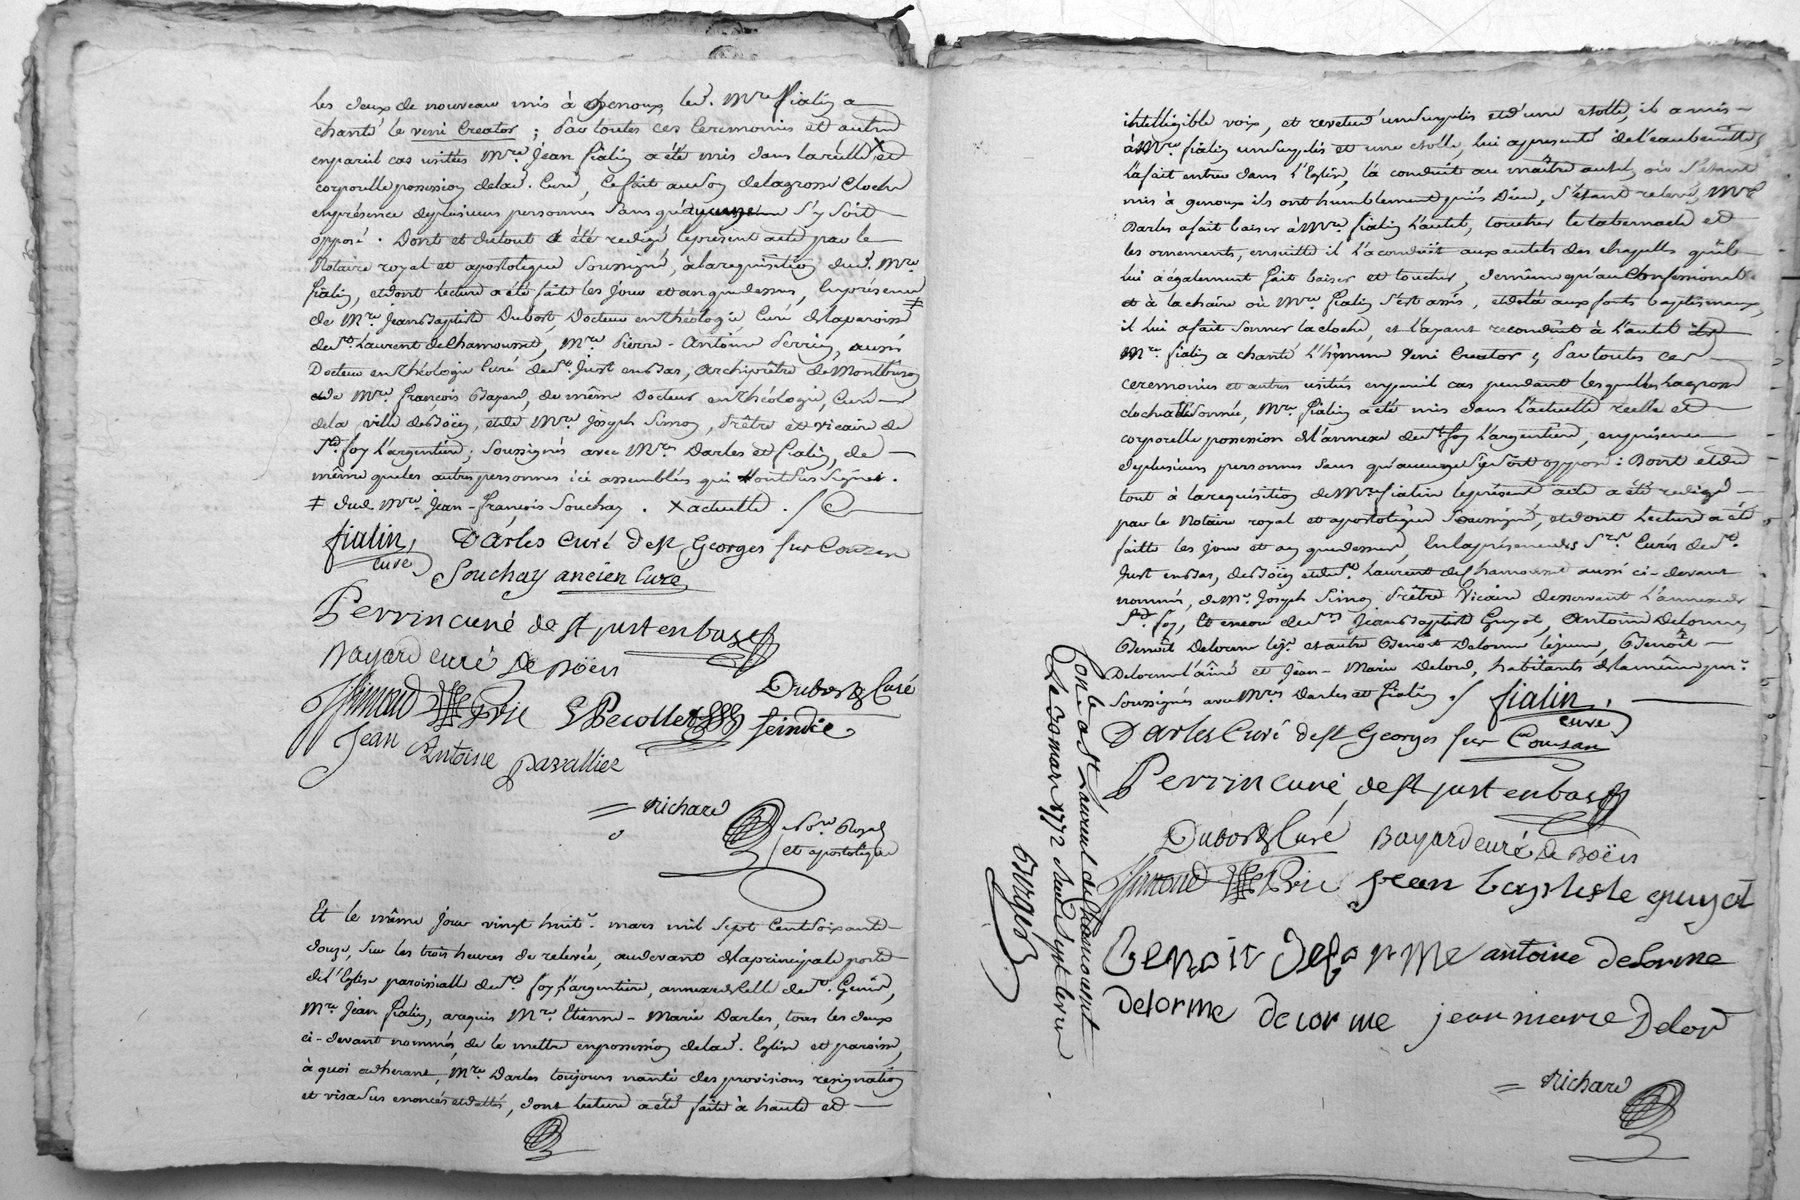 les deux de nouveau mis à Genoux, led. Mre fialin a
chanté le veni Creator ; Par toutes ces Ceremonies et autres
en pareil cas usitées Mre Jean fialin a été mis dans la réelle × et
corporelle possession de lad. Cure, Ce fait au son de la grosse Cloche
en présence de plusieurs personnes sans qu'aucune s'y soit
opposé. Dont et du tout a été redigé le présent acte par le
Notaire royal et apostolique soussigné, à la requisition dud. Mre
fialin, et dont lecture a été faite les jour et an que dessus, En présence ‡
de Mre Jean Baptiste Dubost, Docteur en théologie, Curé de la paroisse
de St. Laurent de Chamousset, Mre Pierre-Antoine Perrin, aussi
Docteur en théologie Curé de St. Just en bas, archiprêtre de Montbrison
de Mre François Bayard, de même Docteur en théologie, Curé
de la ville de Boën, et de Mre Joseph Simon, Prêtre et vicaire de
Ste foy L'argentiere, soussignés avec Mres Darles et fialin, de
même que les autres personnes ici assemblés qui ont sus signer.
‡ dud. Mre Jean-François Souchay. × actuelle.
fialin, curé
Darles curé de st Georges sur Couzan
Souchay ancien Curé
Perrin curé de st just en bas
Bayard curé de Boën
Dubost Curé
Simond Vre
S Pecollet seindic
Jean Antoine pavallier
= Richard
Nore Royal
et apostolique
Et le même jour vingt huit. mars mil sept Cent soixante
douze, sur les trois heures de relevée, au devant de la principale porte
de l'Eglise paroissialle de Ste. foy L'argentiere, annexe de Celle de St. Genis,
Mre Jean fialin, a requis Mre. Etienne-Marie Darles, tous les deux
ci-devant nommés, de le mettre en possession de lad. Eglise et paroisse,
à quoi adherant, Mre. Darles toujours nanti des provisions resignation
et visa sus enoncés et dattés, dont lecture a été faite à haute et
intelligible voix, et revetu d'un surplis et d'une etolle, il a mis
à Mre. fialin un surplis et une etolle, lui a presenté de l'eau benitte,
l'a fait entrer dans l'Eglise, l'a conduit au maître autel, où s'étant
mis à genoux ils ont humblement priés Dieu, s'étant relevés, Mre
Darles a fait baiser à Mre fialin l'autel, toucher le tabernacle et
les ornements, ensuitte il l'a conduit aux autels des chapelles qu'il
lui a également fait baiser et toucher, de même qu'au Confessional
et à la chaire où Mre fialin s'est assis, et de là aux fonts baptismaux,
il lui a fait sonner la cloche, et l'ayant reconduit à l'autel
Mre. fialin a chanté l'hymne Veni Creator ; Par toutes ces
ceremonies et autres usités en pareil cas pendant lesquelles la grosse
cloche a sonné, Mre. fialin a été mis dans l'actuelle réelle et
corporelle possession de l'annexe de Ste foy L'argentiere, en présence
de plusieurs personnes sans qu'aucune s'y soit opposé : Dont et du
tout à la requisition de Mre fialin le présent acte a été redigé
par le Notaire royal et apostolique soussigné, et dont lecture a été
faitte les jour et an que dessus, En la présence des Srs. Curés de St.
Just en bas, de Boën et de St. Laurent de Chamousset aussi ci-devant
nommés, de Mre. Joseph Simon Prêtre Vicaire desservant l'annexe de
Ste. foy, Et encore de Srs Jean Baptiste Guyot, Antoine Delorme,
Benoît Delorme et autre Benoît Delorme le jeune, Benoît
Delorme l'aîné et Jean-Marie Delord, habitants de la même par.
Soussignés avec Mres Darles et fialin.
fialin, curé
Darles Curé de st Georges sur Couzan
Perrin curé de st just en bas
Dubost Curé Bayard curé de Boën
Simond Vre jean baptiste guyot
Benoit delorme antoine delorme
delorme delorme jean marie Delor
= Richard
Conlé a St Laurent de Chamousset
Le 30 mars 1772 Reçu sept livres
Burgod